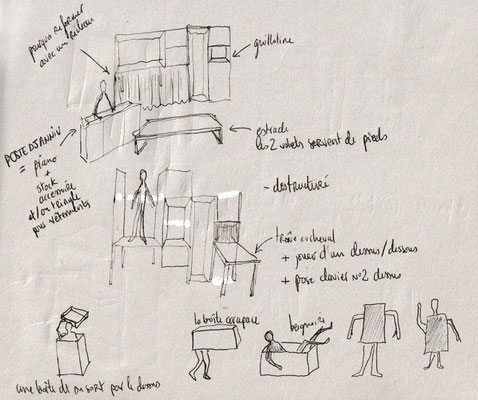 pourquoi refermer
avec un rideau
guillotine
POSTE DJANNIV
=
piano
+
stock
accessoire
et/ou tringle
pour vêtements
estrade
les 2 volets servent de pieds
- destructuré
+ jouer d'un dessus/dessous
+ pose clavier n°2 dessus
une boîte dt on sort par le dessus
la boîte carapace
baignoire